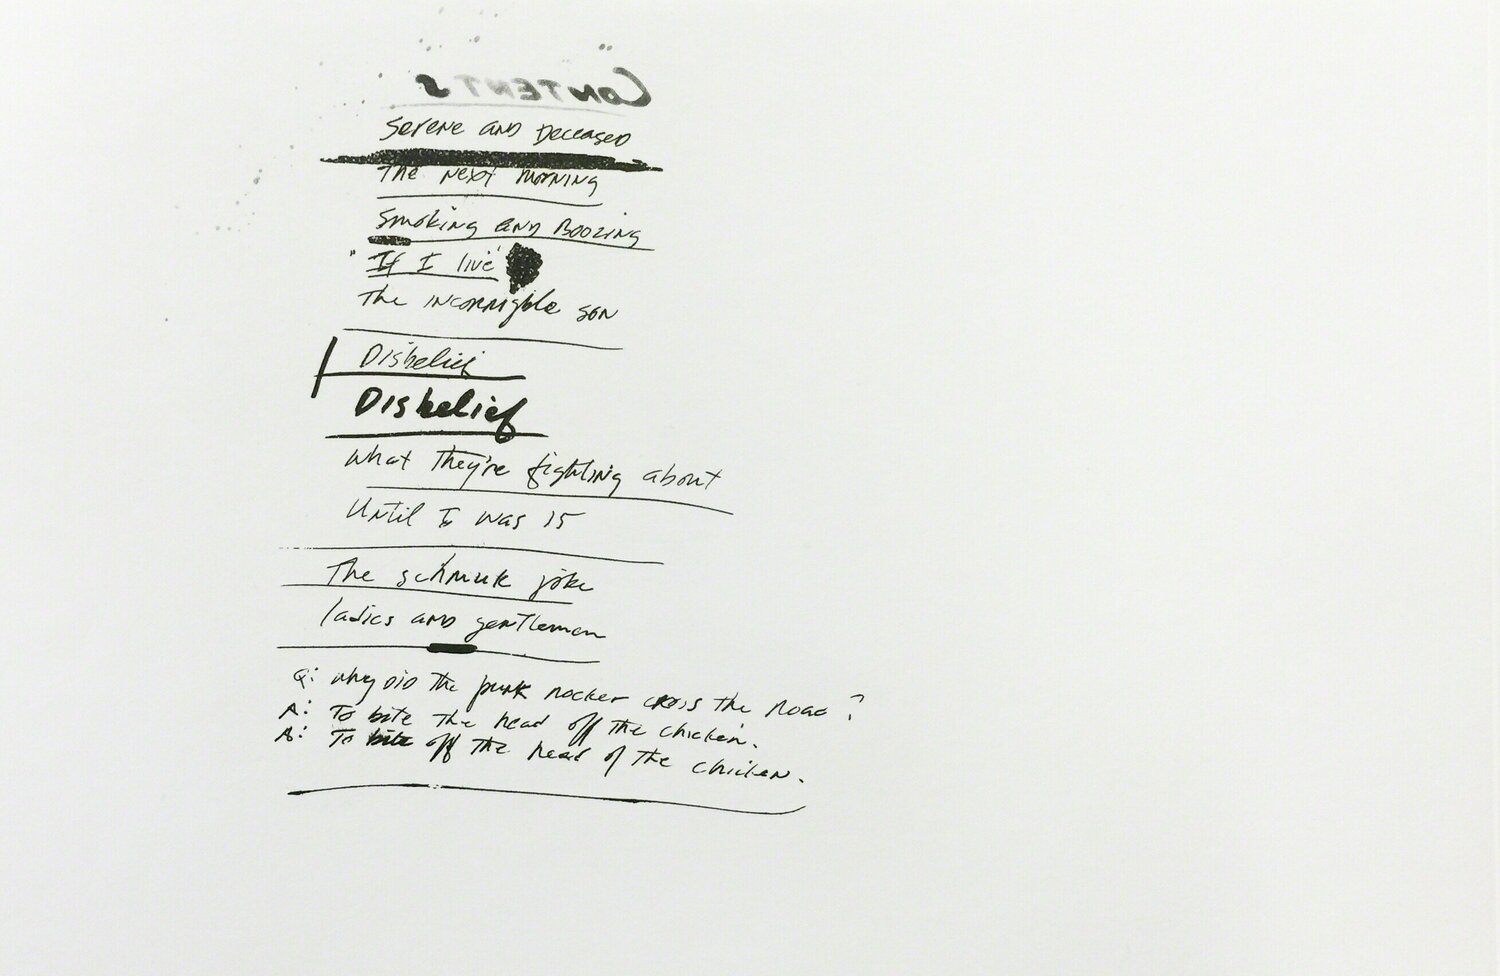 CONTENTS
Serene and Deceased
The next morning
Smoking and Boozing
"If I live"
The incorrigible son
Disbelief
Disbelief
What they're fighting about
Until I was 15
The schmuk joke
ladies and gentlemen
Q: Why did the punk rocker cross the road?
A: To bite the head off the chicken.
A: To bite off the head of the chicken.